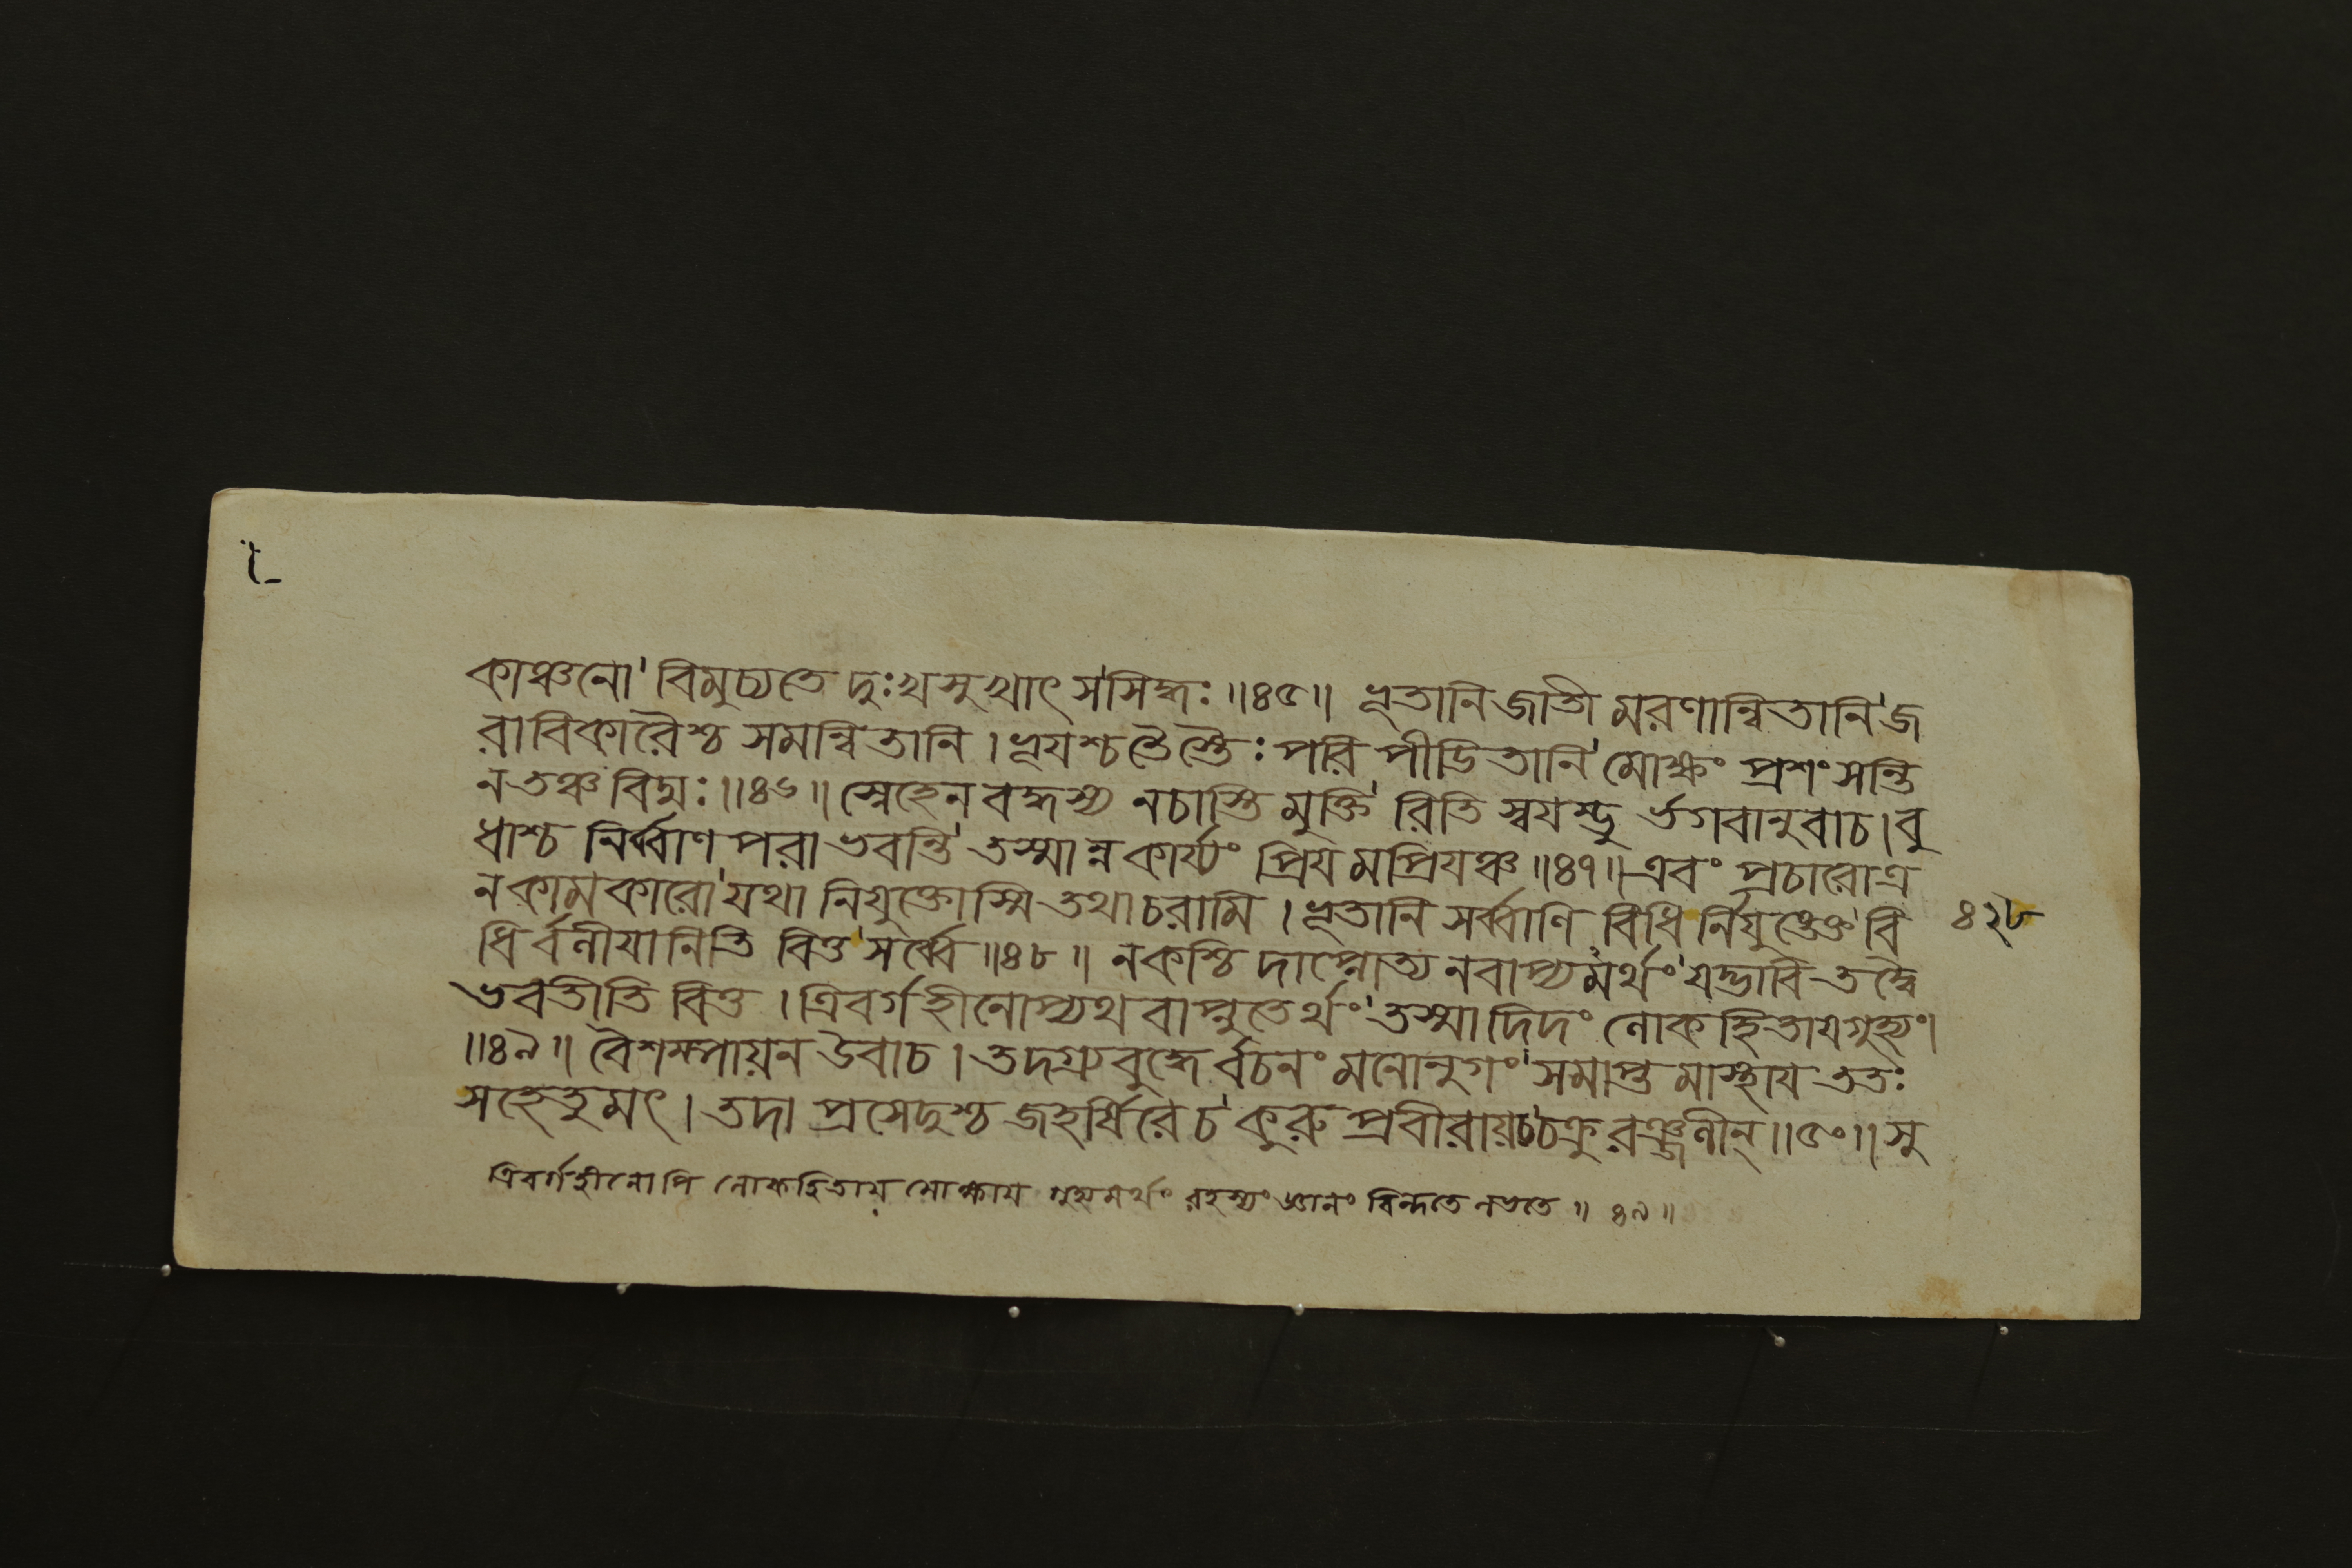 কাঞ্চনো' বিমুচ্যতে দুঃখসুখাৎ স'সিদ্ধঃ ॥৪৫॥ ভূতানি জাতী মরণান্বিতানি' জ
রাবিকারৈশ্চ সমন্বিতানি । ভূযশ্চ তৈস্তৈঃ পরি পীডিতানি' মোক্ষং প্রশংসন্তি
ন তঞ্চ বিদ্মঃ ॥৪৬॥ স্নেহেন বদ্ধস্য নচাস্তি মুক্তি' রিতি স্বযম্ভু র্ভগবানুবাচ । বু
ধাশ্চ নির্ব্বাণ পরা ভবন্তি' তস্মান্ন কার্য্যং প্রিয মপ্রিযঞ্চ ॥৪৭॥ এবং প্রচারোত্র
ন কামকারো' যথা নিযুক্তোস্মি তথাচরামি । ভূতানি সর্ব্বাণি বিধি র্নিযুঙ্ক্তে' বি
৪২৮
ধি র্বলীযানিতি বিত্ত' সর্ব্বে ॥৪৮॥ নকশ্চি দাপ্নোত্য নবাপ্য মর্থং' যদ্ভাবি তদ্বৈ
ভবতীতি বিত্ত । ত্রিবর্গহীনোপ্যথ বাপ্নুতের্থং' তস্মাদিদং লোকহিতায গুহ্যং।
॥৪৯॥ বৈশম্পায়ন উবাচ । তদগ্র্য বুদ্ধে র্বচনং মনোনুগং' সমাপ্ত মাস্থায ততঃ
সহেতুমৎ । তদা প্রসেদুশ্চ জহর্ষিরে চ' কুরু প্রবীরায়চ চক্রু রঞ্জলীন্ ॥৫০॥ সু
ত্রিবর্গহীনোপি লোকহিতায় মোক্ষায গুহ্যমর্থং রহস্যং জ্ঞানং বিন্দতে লভতে ॥ ৪৯ ॥